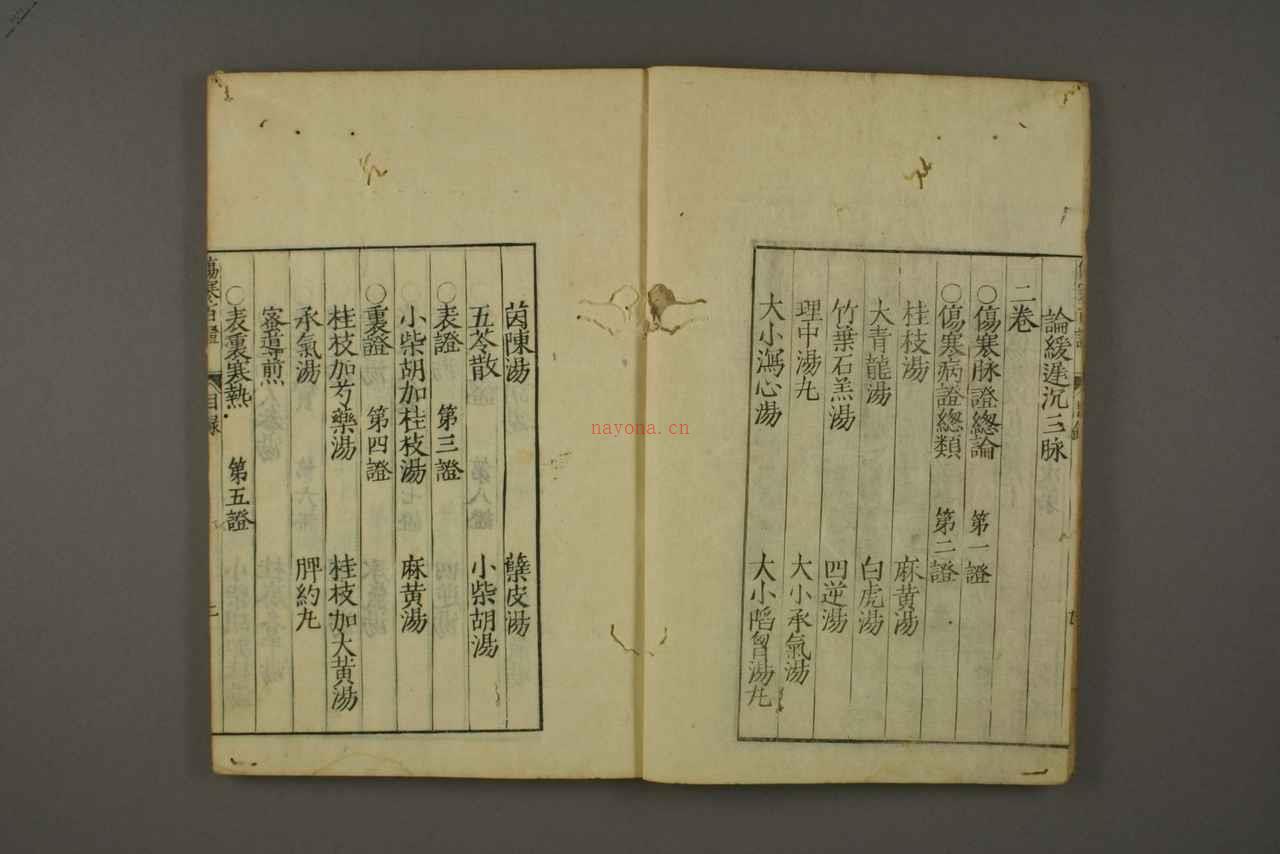 論緩遲沉三脉
二卷
○傷寒脉證總論 第一證
○傷寒病證總類 第二證
桂枝湯 麻黄湯
大青龍湯 白虎湯
竹葉石羔湯 四逆湯
理中湯丸 大小承氣湯
大小瀉心湯 大小陷胷湯丸
茵陳湯 蘗皮湯
五苓散 小柴胡湯
○表證 第三證
小柴胡加桂枝湯 麻黄湯
○裏證 第四證
桂枝加芍藥湯 桂枝加大黄湯
承氣湯 脾約丸
蜜導煎
○表裏寒熱 第五證
傷寒百證 目録
nayona.cn